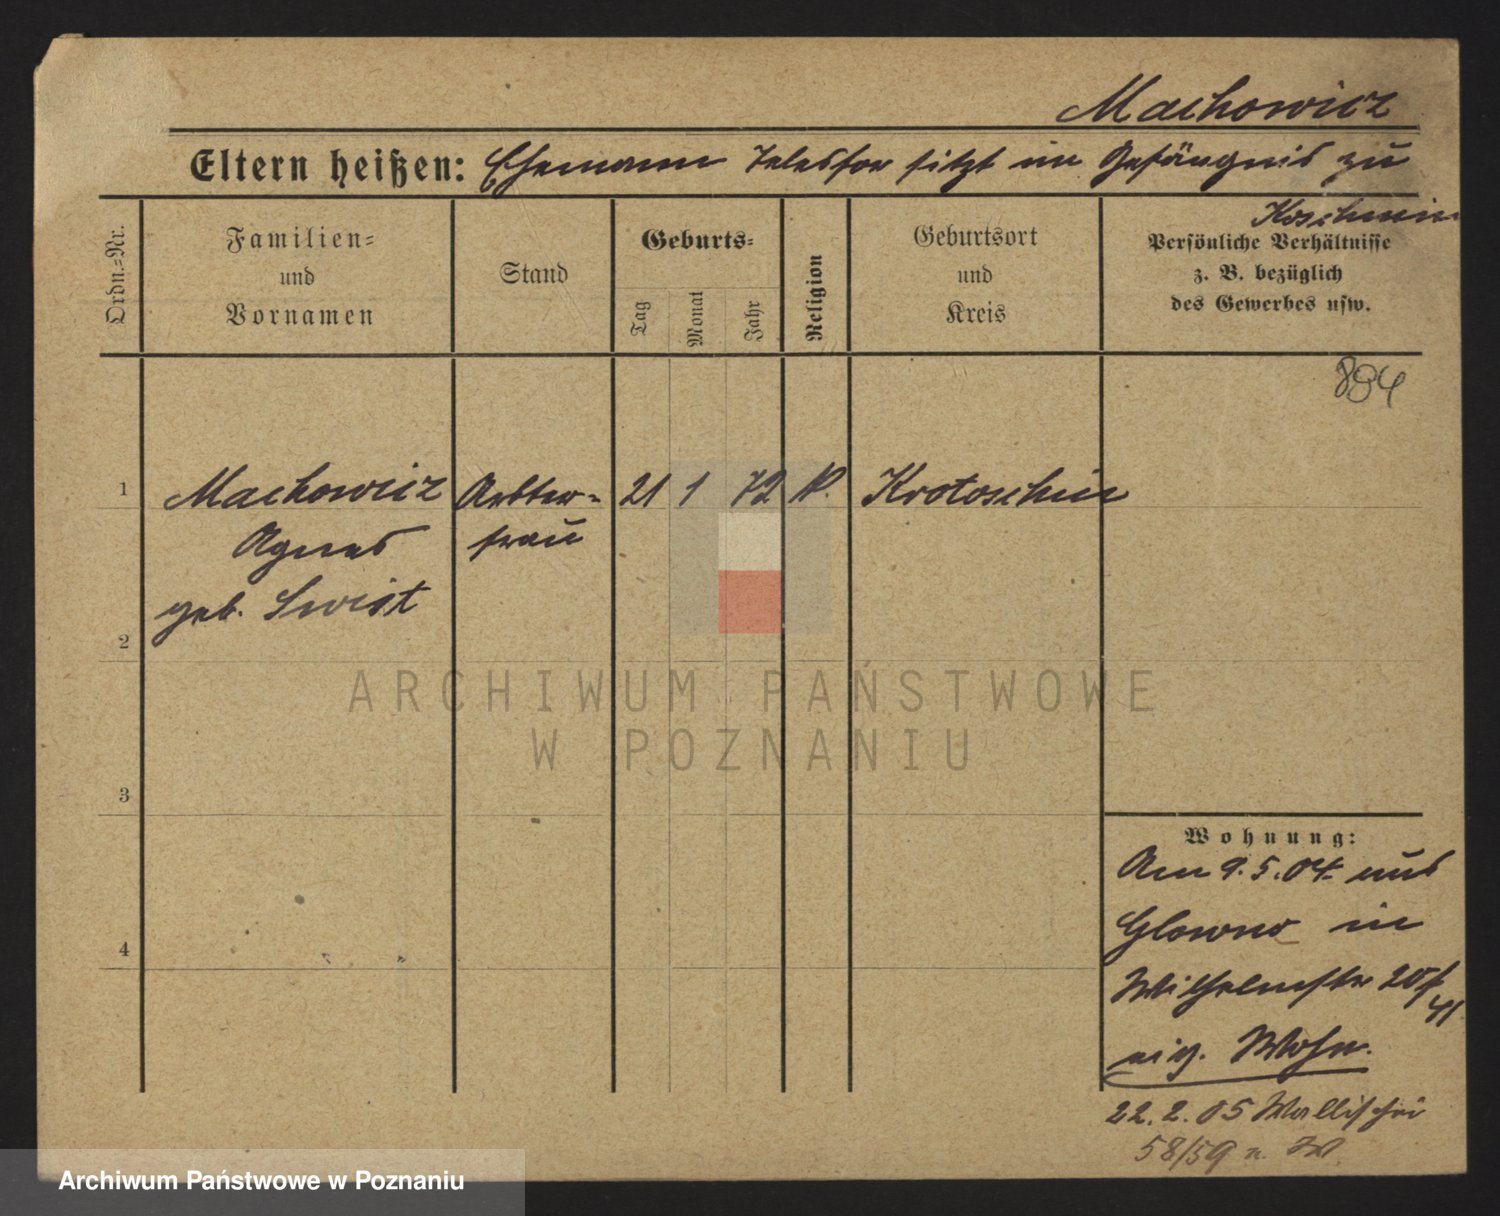 Machowicz
Eltern heißen: Ehemann Telesfor sitzt im Gefängnis zu
Koschmin
Ordn.-Nr.
Familien-
und
Vornamen
Stand
Geburts-
Tag
Monat
Jahr
Religion
Geburtsort
und
Kreis
Persönliche Verhältnisse
z. B. bezüglich
des Gewerbes usw.
884
1 Machowicz Arbter- 21 1 72 K. Krotoschin
Agnes frau
geb. Swist
2
ARCHIWUM PAŃSTWOWE
W POZNANIU
3
4
Wohnung:
Am 9.5.04. aus
Glowno in
Wilhelmstr 20
eig. Wohn.
22.2.05 Wallischei
58/59 n. W.
Archiwum Państwowe w Poznaniu